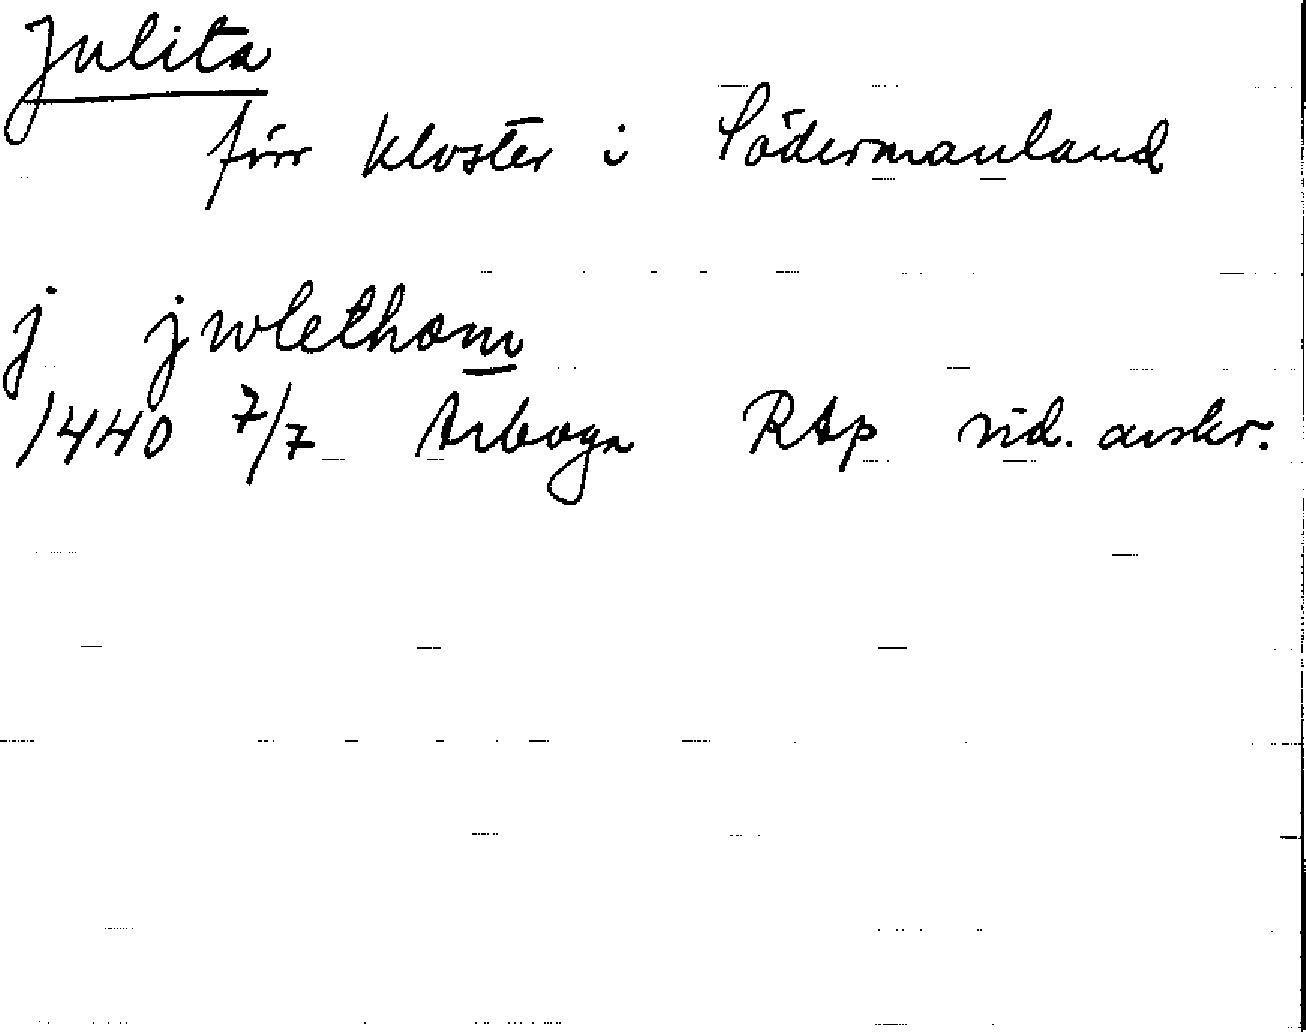 Julita
förr kloster i Södermanland
j jwlethom
1440 7/7 Arboga RAp vid. avskr.